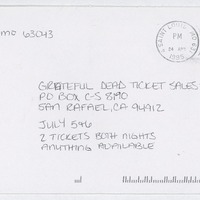 MO 63043
SAINT LOUIS MO
PM
1995
GRATEFUL DEAD TICKET SALES
PO BOX C-S 8190
SAN RAFAEL, CA 94912
JULY 5+6
2 TICKETS BOTH NIGHTS
ANYTHING AVAILABLE